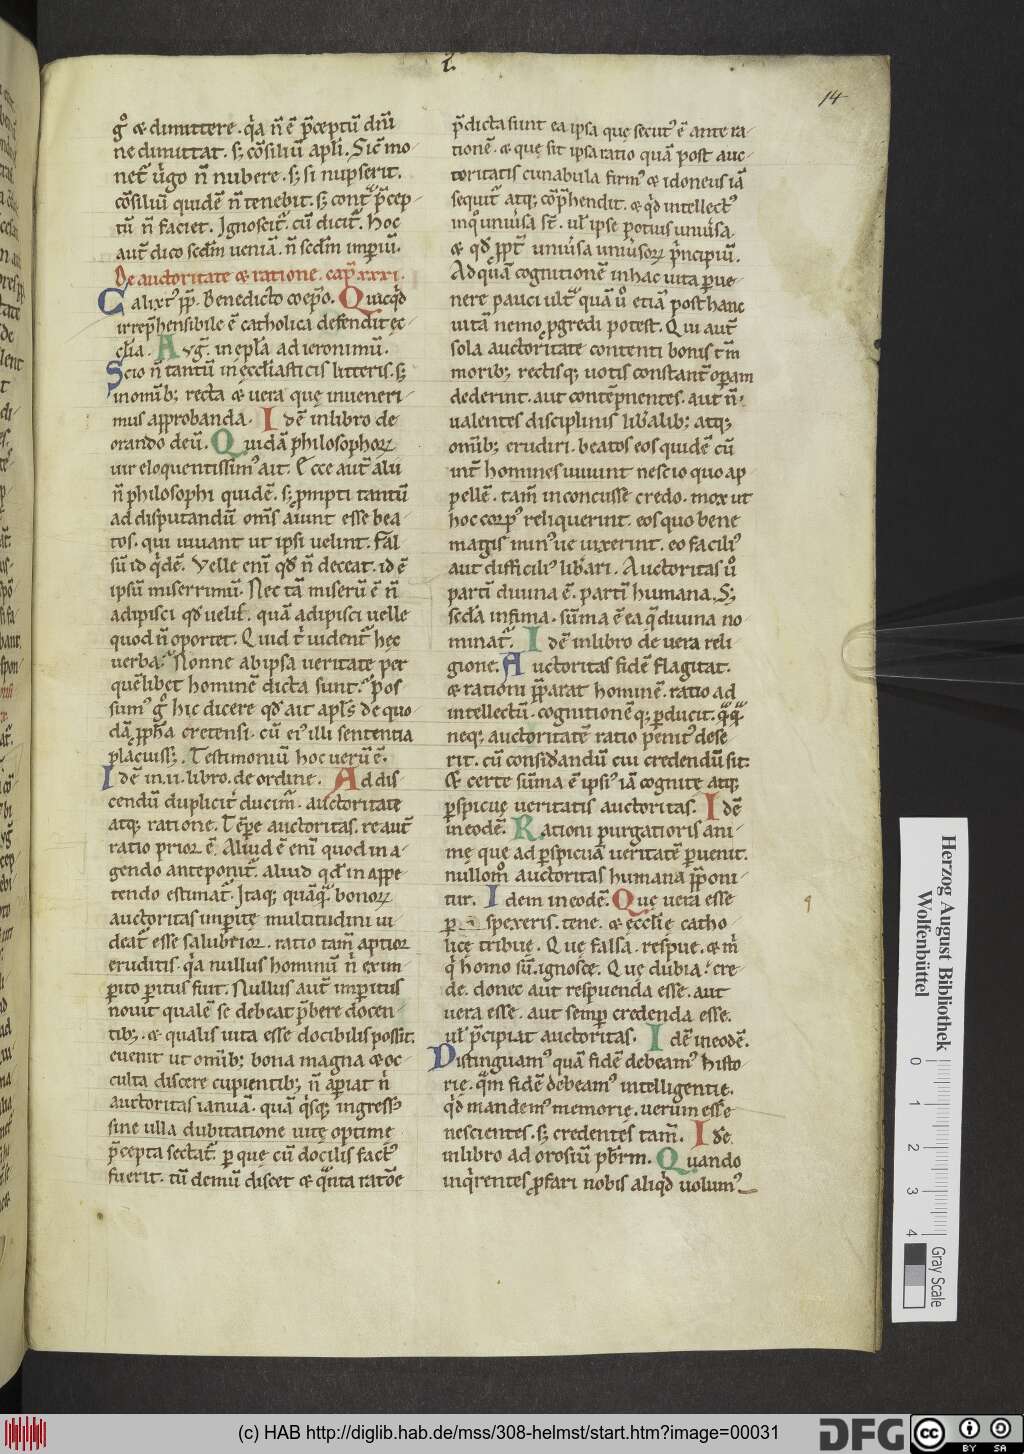 .I.
14
gͦ & dimittere. q̇a n̄ ē p̄ceptū dn̄i
ne dimittat. sꝫ c̄osiliū apl̄i. Sic̄ mo-
net̄ ṽgo n̄ nubere. sꝫ si nupserit.
c̄osiliū quidē n̄ tenebit. sꝫ cont̄ p̄cep-
tū n̄ faciet. Ignoscit̄. cū dicit̄. Hoc
aut̄ dico scd̄m ueniā. n̄ scd̄m imperiū.
De auctoritate & ratione. cap̄. xxxi.
Calixt᷒ pp̄. Benedicto coep̄o. Quicq̇d
irrep̄hensibile ē catholica defendit ęc-
cl̄ia. Aug̅. in epl̄a ad ieronimū.
Scio n̄ tantū in ęccl̄iasticis litteris. sꝫ
in omībꝫ recta & uera quę inueneri-
mus approbanda. Idē in libro de
orando deū. Quidā philosophoꝝ
uir eloquentissim᷒ ait. Ecce aut̄ alii
n̄ philosophi quidē. sꝫ p̄mpti tantū
ad disputandū om̄s aiunt esse bea-
tos. qui uiuant ut ipsi uelint. Fal-
sū id q̇dē. Velle enī qd̄ n̄ deceat. id ē
ipsū miserrimū. Nec tā miserū ē n̄
adipisci qd̄ uelis̄. quā adipisci uelle
quod n̄ oportet. Quid t̄ uident̄ hęc
uerba? Nonne ab ipsa ueritate per
quēlibet hominē dicta sunt? Pos-
sum᷒ gͦ hic dicere qd̄ ait apl̄s de quo-
dā ꝓph̄a cretensi. cū ei᷒ illi sententia
placuisꝫ. Testimoniū hoc uerū ē.
Idē in .ii. libro. de ordine. Ad dis-
cendū duplicit̄ ducim̄. auctoritate
atqꝫ ratione. Tēpe auctoritas. re aut̄
ratio prior ē. Aliud ē enī quod in a-
gendo anteponit̄. aliud qd̄ in appe-
tendo estimat̄. Itaqꝫ quāq̄ bonoꝝ
auctoritas imperitę multitudini ui-
deat̄ esse salubrior. ratio tam̄ aptior
eruditis. q̇a nullus hominū n̄ ex im-
ꝑito ꝑitus fiut. Nullus aut̄ imperitus
nouit qualē se debeat p̄bere docen-
tibꝫ. & quali uita esse docibilis possit.
euenit ut omībꝫ bona magna & oc-
culta discere cupientibꝫ n̄ aꝑiat n̄
auctoritas ianuā. quā q̇sqꝫ ingress᷒
sine ulla dubitatione uitę optime
p̄cepta sectat̄. ꝑ quę cū docilis fact᷒
fuerit. tū demū discet & q̄nta ratōe
p̄dicta sunt ea ipsa quę secut᷒ ē ante ra-
tionē. & quę sit ipsa ratio quā post auc-
toritatis cunabula firm᷒ & idoneus iā
sequit̄ atqꝫ c̄op̄hendit. & q̇d intellect᷒
in qͦ uniũsa st̄. ul̄ ipse potius uniũsa.
& qd̄ p̄pt̄ uniũsa uniũsoꝝ p̄ncipiū.
Ad quā cognitionē in hac uita ꝑue-
nere pauci. ult̄ quā uͦ etiā post hanc
uitā nemo ꝓgredi potest. Qui aut̄
sola auctoritate contenti bonis tm̄
moribꝫ rectisqꝫ uotis constant̄ opam
dederint. aut contēpnentes. aut n̄
ualentes disciplinis lib̄alibꝫ atqꝫ
omībꝫ erudiri. beatos eos quidē cū
int̄ homines uiuunt nescio quo ap-
pellē. tam̄ inconcusse credo. mox ut
hoc corp᷒ reliquerint. eos quo bene
magis min᷒ue uixerint. eo facili᷒
aut difficili᷒ lib̄ari. Auctoritas uͦ
parti divina ē. parti humana. Sꝫ
secl̄a infima. sūma ē ea q̄ diuina no-
minat̄. Idē in libro de uera reli-
gione. Auctoritas fidē flagitat.
& rationi p̄parat hominē. ratio ad
intellectū. cognitionēqꝫ ꝑducit. q̄q̄
neqꝫ auctoritatē ratio penit᷒ dese-
rit. cū considandū cui credendū sit.
& certe sūma ē ipsi᷒ iā cognitę atqꝫ
ꝑspicuę ueritatis auctoritas. Idē
in eodē. Rationi purgatioris ani-
mę quę ad ꝑspicuā ueritatē ꝑuenit.
nullom̊ auctoritas humana p̄poni-
tur. Idem in eodē. Quę uera esse
ꝑspexeris. tene. & ęccl̄ię catho-
licę tribuę. Quę falsa. respue. & m̄
q̇ homo sū. ignosce. Quę dubia. cre-
de. donec aut respuenda esse. aut
uera esse. aut semꝑ credenda esse.
ul̄ p̄cipiat auctoritas. Idē in eodē.
Distinguam᷒ quā fidē debeam᷒ histo-
rię. q̄m fidē debeam᷒ intelligentię.
q̇d mandem᷒ memorię. uerum esse
nescientes. sꝫ credentes tam̄. Idē
in libro ad orosiū pb̄rm. Quando
inq̇rentes ꝓfari nobis aliq̇d uolum᷒
Herzog August Bibliothek
Wolfenbüttel
0 1 2 3 4
Gray Scale
(c) HAB http://diglib.hab.de/mss/308-helmst/start.htm?image=00031
DFG
cc BY SA